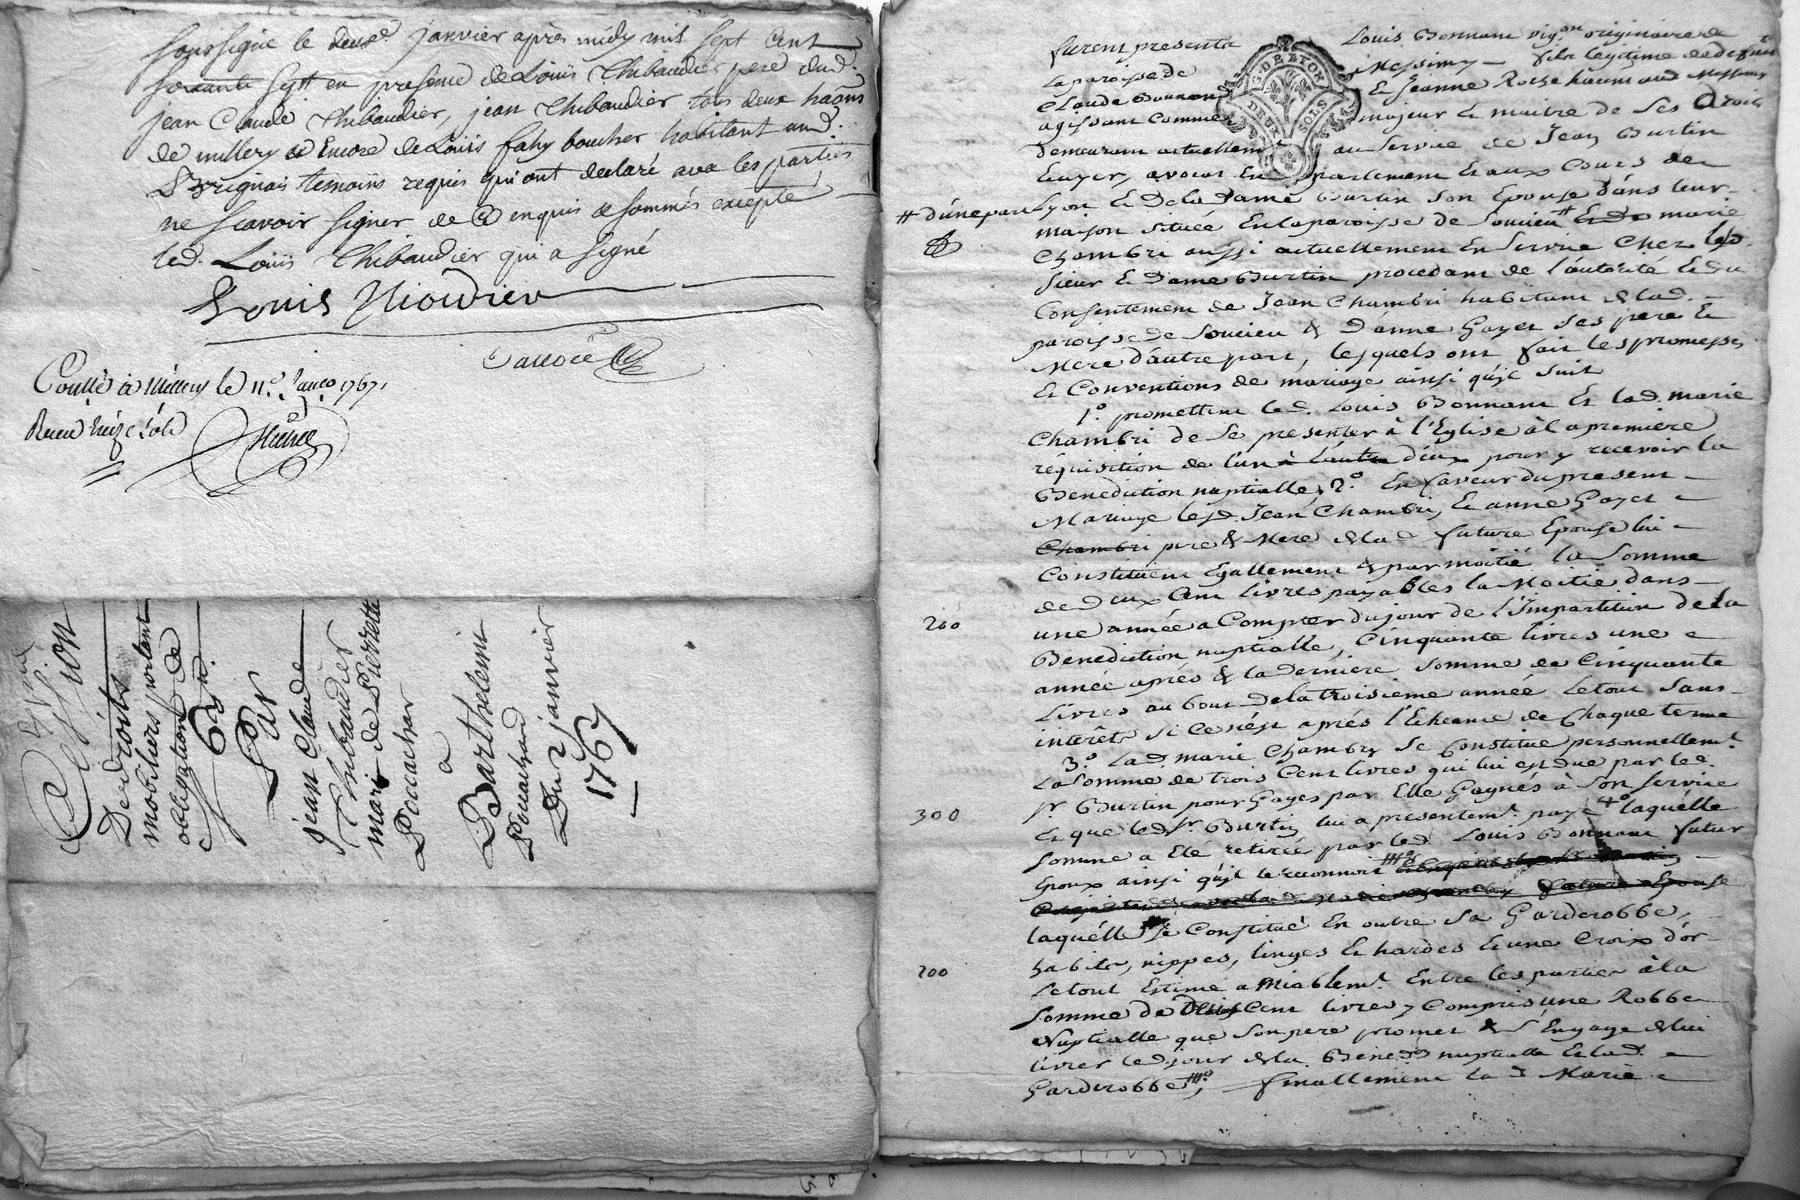 soussigné le deuxe. janvier après midy mil sept cent
soixante sept en presence de Louis Thibaudier pere dud.
jean Claude Thibaudier, jean Thibaudier tous deux
de millery & Encore de Louis fahy boucher habitant aud.
Brignais temoins requis qui ont declaré avec les parties
ne scavoir signer de ce enquis & sommés excepté
led. Louis Thibaudier qui a signé
Louis
à Millery le 11e. 1767
Recu treize sols
Cession
De droits
mobiliers portant
obligation de
Par
jean Claude
Thibaudier
mari de Pierrette
à
Barthelemi
Du 2 janvier
1767
G. DE LYON
DEUX SOLS
furent presents Louis Bonnam originaire de
la paroisse de Messimy fils legitime de defunt
Claude Bonnam & Jeanne
agissant comme majeur & maitre de ses droits
Demeurant actuellemt. au service de Jean Burtin
Ecuyer, avocat En parlement & aux Cours de
# d'une part
Lyon & De la Dame Burtin son Epouse dans leur
maison située En la paroisse de Soucieu # & marie
Chambri aussi actuellement En service chez led.
sieur & Dame Burtin procedant de l'autorité & du
Consentement de Jean Chambri habitant de lad.
paroisse de Soucieu & d'anne Gayet ses pere &
Mere d'autre part, lesquels ont fait les promesses
& Conventions de mariage ainsi qu'il suit
1°. promettent led. Louis Bonnam & lad. marie
Chambri de se presenter à l'Eglise à la premiere
réquisition de l'un à l'autre d'eux pour y recevoir la
Benediction nuptialle, 2°. En faveur du present
Mariage lesd. Jean Chambri, & anne Gayet
Chambri pere & Mere de lad. future Epouse lui
Constituent Egallement & par moitié la somme
de deux Cent livres payables la Moitié dans
200
une année a Compter du jour de l'impartition de la
Benediction nuptialle, Cinquante livres une
année après & la derniere somme de Cinquante
Livres au bout de la troisieme année le tout sans
interets si ce n'est après l'Echeance de Chaque terme
3°. lad. marie Chambry se Constitue personnellemt.
La somme de trois Cent livres qui lui est due par led.
300
sr. Burtin pour Gages par Elle Gagnés à son service
& que led. sr. Burtin lui a presentemt. payé laquelle
somme a été retirée par led. Louis Bonnam futur
Epoux ainsi qu'il le reconnoit
Epouse
laquelle se Constitue En outre sa Garderobbe,
habits, nippes, linges & hardes & une Croix d'or
200
Le tout Estimé amiablemt. Entre les parties à la
somme de Deux Cent livres y Compris une Robbe
Nuptialle que son pere promet & s'Engage de lui
livrer le jour de la Bened. nuptialle & lad.
Garderobbe, finallement la d. Marie